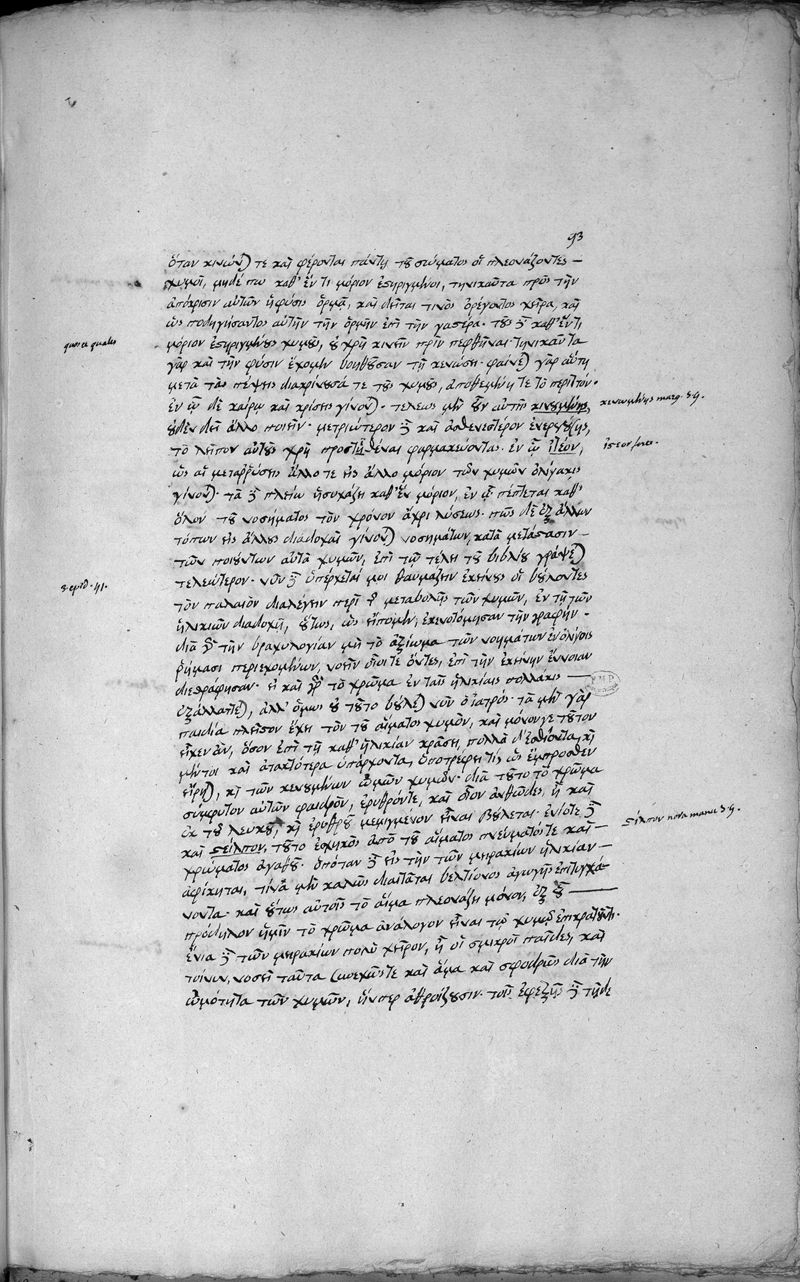 93
ὅταν κινῶν) τε καὶ φέρονται πάντη τοῦ σώματος οἱ πλεονάζοντες –
χυμοὶ, μηδέ πω καθ' ἕν τι μόριον ἐστηριγμένοι, τηνικαῦτα πρὸς τὴν
ἀπόκρισιν αὐτῶν ἡ φύσις ὁρμᾷ, καὶ δεῖται τινὸς ὀρέγοντος χεῖρα, καὶ
ὡς ποδηγήσαντος αὐτὴν τὴν ὁρμὴν ἐπὶ τὴν γαστέρα. τοὺς δὲ καθ' ἕν τι
μόριον ἐστηριγμένους χυμοὺς, οὐ χρὴ κινεῖν πρὶν πεφθῆναι. τηνικαῦτα
γὰρ καὶ τὴν φύσιν ἔχομεν βοηθοῦσαν τῇ κενώσει. φαίνε) γὰρ αὕτη
μετὰ τὰς πέψεις διακρίνουσά τε τοὺς χυμοὺς, ἀποθεμένη τε τὸ περιττόν.
ἐν ᾧ δὲ καιρῷ καὶ κρίσεις γίνον). τελέως μὲν οὖν αὐτῆς κινουμένης
οὐδὲν δεῖ ἄλλο ποιεῖν. μετριώτερον δὲ καὶ ἀσθενεστέρον ἐνεργούσης,
τὸ λεῖπον αὐτοὺς χρὴ προστιθέναι φαρμακεύοντας. ἐν ᾧ ἰτέον,
ὡς αἱ μεταρρύσεις ἄλλοτε εἰς ἄλλο μόριον τῶν χυμῶν ὀλιγάκις
γίνον). τὰ δὲ πλείω ἡσυχάζει καθ' ἓν μόριον, ἐν ᾧ πέπτεται καθ'
ὅλον τοῦ νοσήματος τὸν χρόνον ἄχρι λύσεως. πῶς δὲ ἐξ ἄλλων
τόπων εἰς ἄλλους διαδοχαὶ γίνον) νοσημάτων, κατὰ μετάστασιν –
τῶν ποιούντων αὐτὰ χυμῶν, ἐπὶ τῷ τέλει τοῦ βιβλίου γράψε)
τελεώτερον. νῦν δὲ ὑπέρχεταί μοι θαυμάζειν ἐκείνους οἱ βουλόντες
τὸν παλαιὸν διαλέγειν περὶ τῆς μεταβολῆς τῶν χυμῶν, ἐν τῇ τῶν
ἡλικιῶν διαδοχῇ, οὕτως, ὡς εἴπομεν, ἐκαινοτόμησαν τὴν γραφήν.
διὰ δὲ τὴν βραχυλογίαν μὴ τὸ ἀξίωμα τῶν νοημάτων ἐν ὀλίγοις
ῥήμασι περιεχομένων, νοεῖν οἷοί τε ὄντες, ἐπὶ τὴν ἐκείνην ἔννοιαν
διεφθάρησαν. εἰ καὶ γὰρ τὸ χρῶμα ἐν ταῖς ἡλικίαις πολλάκις –
ἐξαλλάττε), ἀλλ' ὅμως οὐ τοῦτο βούλε) νῦν ὁ ἰατρός. τὰ μὲν γὰρ
παιδία πλεῖστον ἔχει τὸν τοῦ αἵματος χυμὸν, καὶ μόνον γε τοῦτον
εἶχεν ἂν, ὅσον ἐπὶ τῇ καθ' ἡλικίαν κράσει, πολλὰ δ' ἐσθίοντα, καὶ
μέντοι καὶ ἀτακτότερα ὑπάρχοντα, ὑποτρέφει τι, ὡς ἔμπροσθεν
εἴρη), καὶ τῶν κενουμένων ὠμῶν χυμῶν. διὰ τοῦτο τὸ χρῶμα
σύμφυτον αὐτῶν φαιδρὸν, ἐρυθρόν τε, καὶ οἷον ἀνθῶδες, ἢ καὶ
ἐκ τοῦ λευκοῦ, καὶ ἐρυθροῦ μεμιγμένον εἶναι βούλεται. ἐνίοτε δὲ
καὶ στίλπον, τοῦτο ἐσχηκὸς ἀπὸ τοῦ αἵματος πνεύματός τε καὶ –
χρώματος ἀγαθοῦ. ὁπόταν δὲ εἰς τὴν τῶν μειρακίων ἡλικίαν –
ἀφίκηται, τινὰ μὲν καλῶς διαιτᾶται βελτίονος ἀγωγῆς ἐπιτυγχά
νοντα. καὶ οὕτως αὐτοῖς τὸ αἷμα πλεονάζει μόνον, ἐξ οὗ –
πρόδηλον ἡμῖν τὸ χρῶμα ἀνάλογον εἶναι τῷ χυμῷ ἐπικρατοῦντι.
ἔνια δὲ τῶν μειρακίων πολὺ χεῖρον, ἢ οἱ σμικροὶ παῖδες, καὶ
τοίνυν νοσεῖ ταῦτα συνεχῶς τε καὶ ἅμα καὶ σφοδρῶς διὰ τὴν
ὠμότητα τῶν χυμῶν, ἥνπερ ἀθροίζουσιν. τοῖς ἐφεξῆς δὲ τῆς δε
quae a quales
3 epid. 41.
κινουμένης marg. 39.
ἰστέον fortes.
στίλπον nota manu 39.